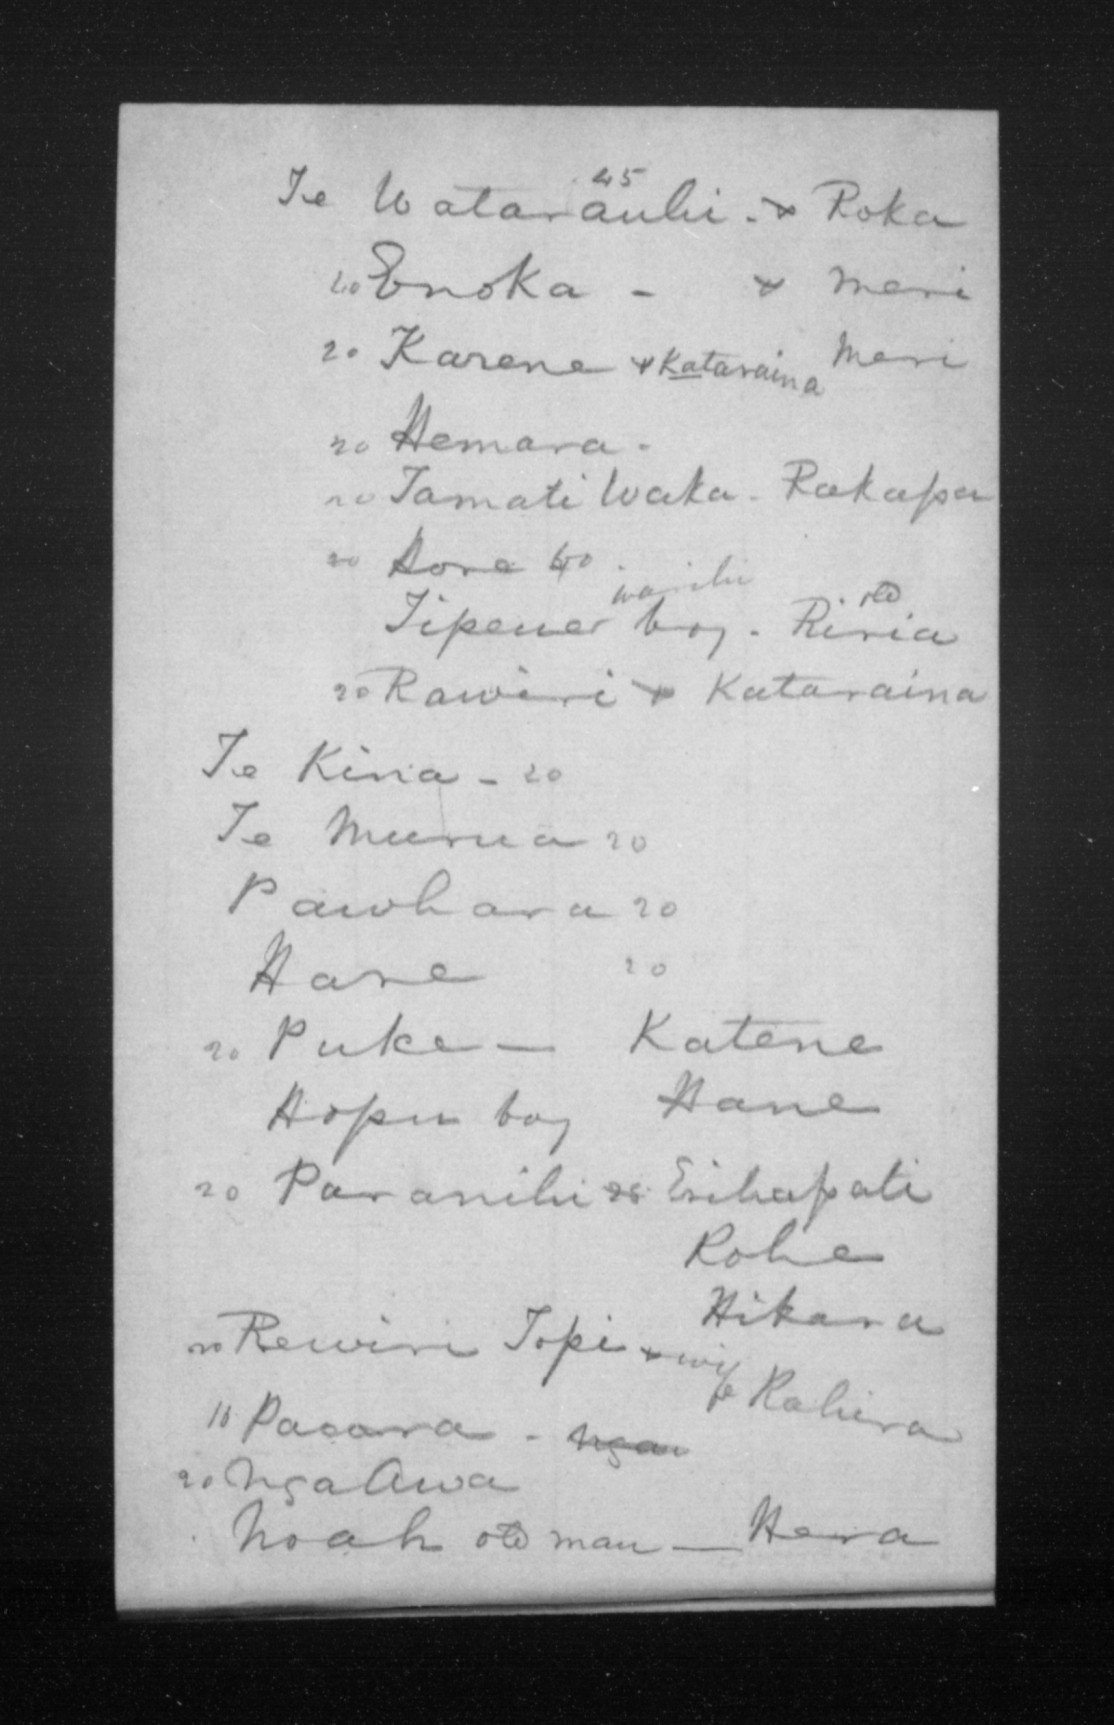 45
Te Watarauhi - & Roka
20 Enoka - & Meri
20 Karene & Kataraina Meri
20 Hemara -
20 Tamati Waka - Rakapa
20 Hore 40 -
warihi old
Tipener boy - Riria
20 Rawiri & Kataraina
Te Kina - 20
Te Murua 20
Pawhara 20
Hare 20
20 Puke - Katene
Hopu boy Hane
20 Paranihi Erihapati
Rohe
Hikara
20 Rewiri Topi & wife Rahira
Paoara - Ngaw
20 Nga Awa
Noah old man - Hera